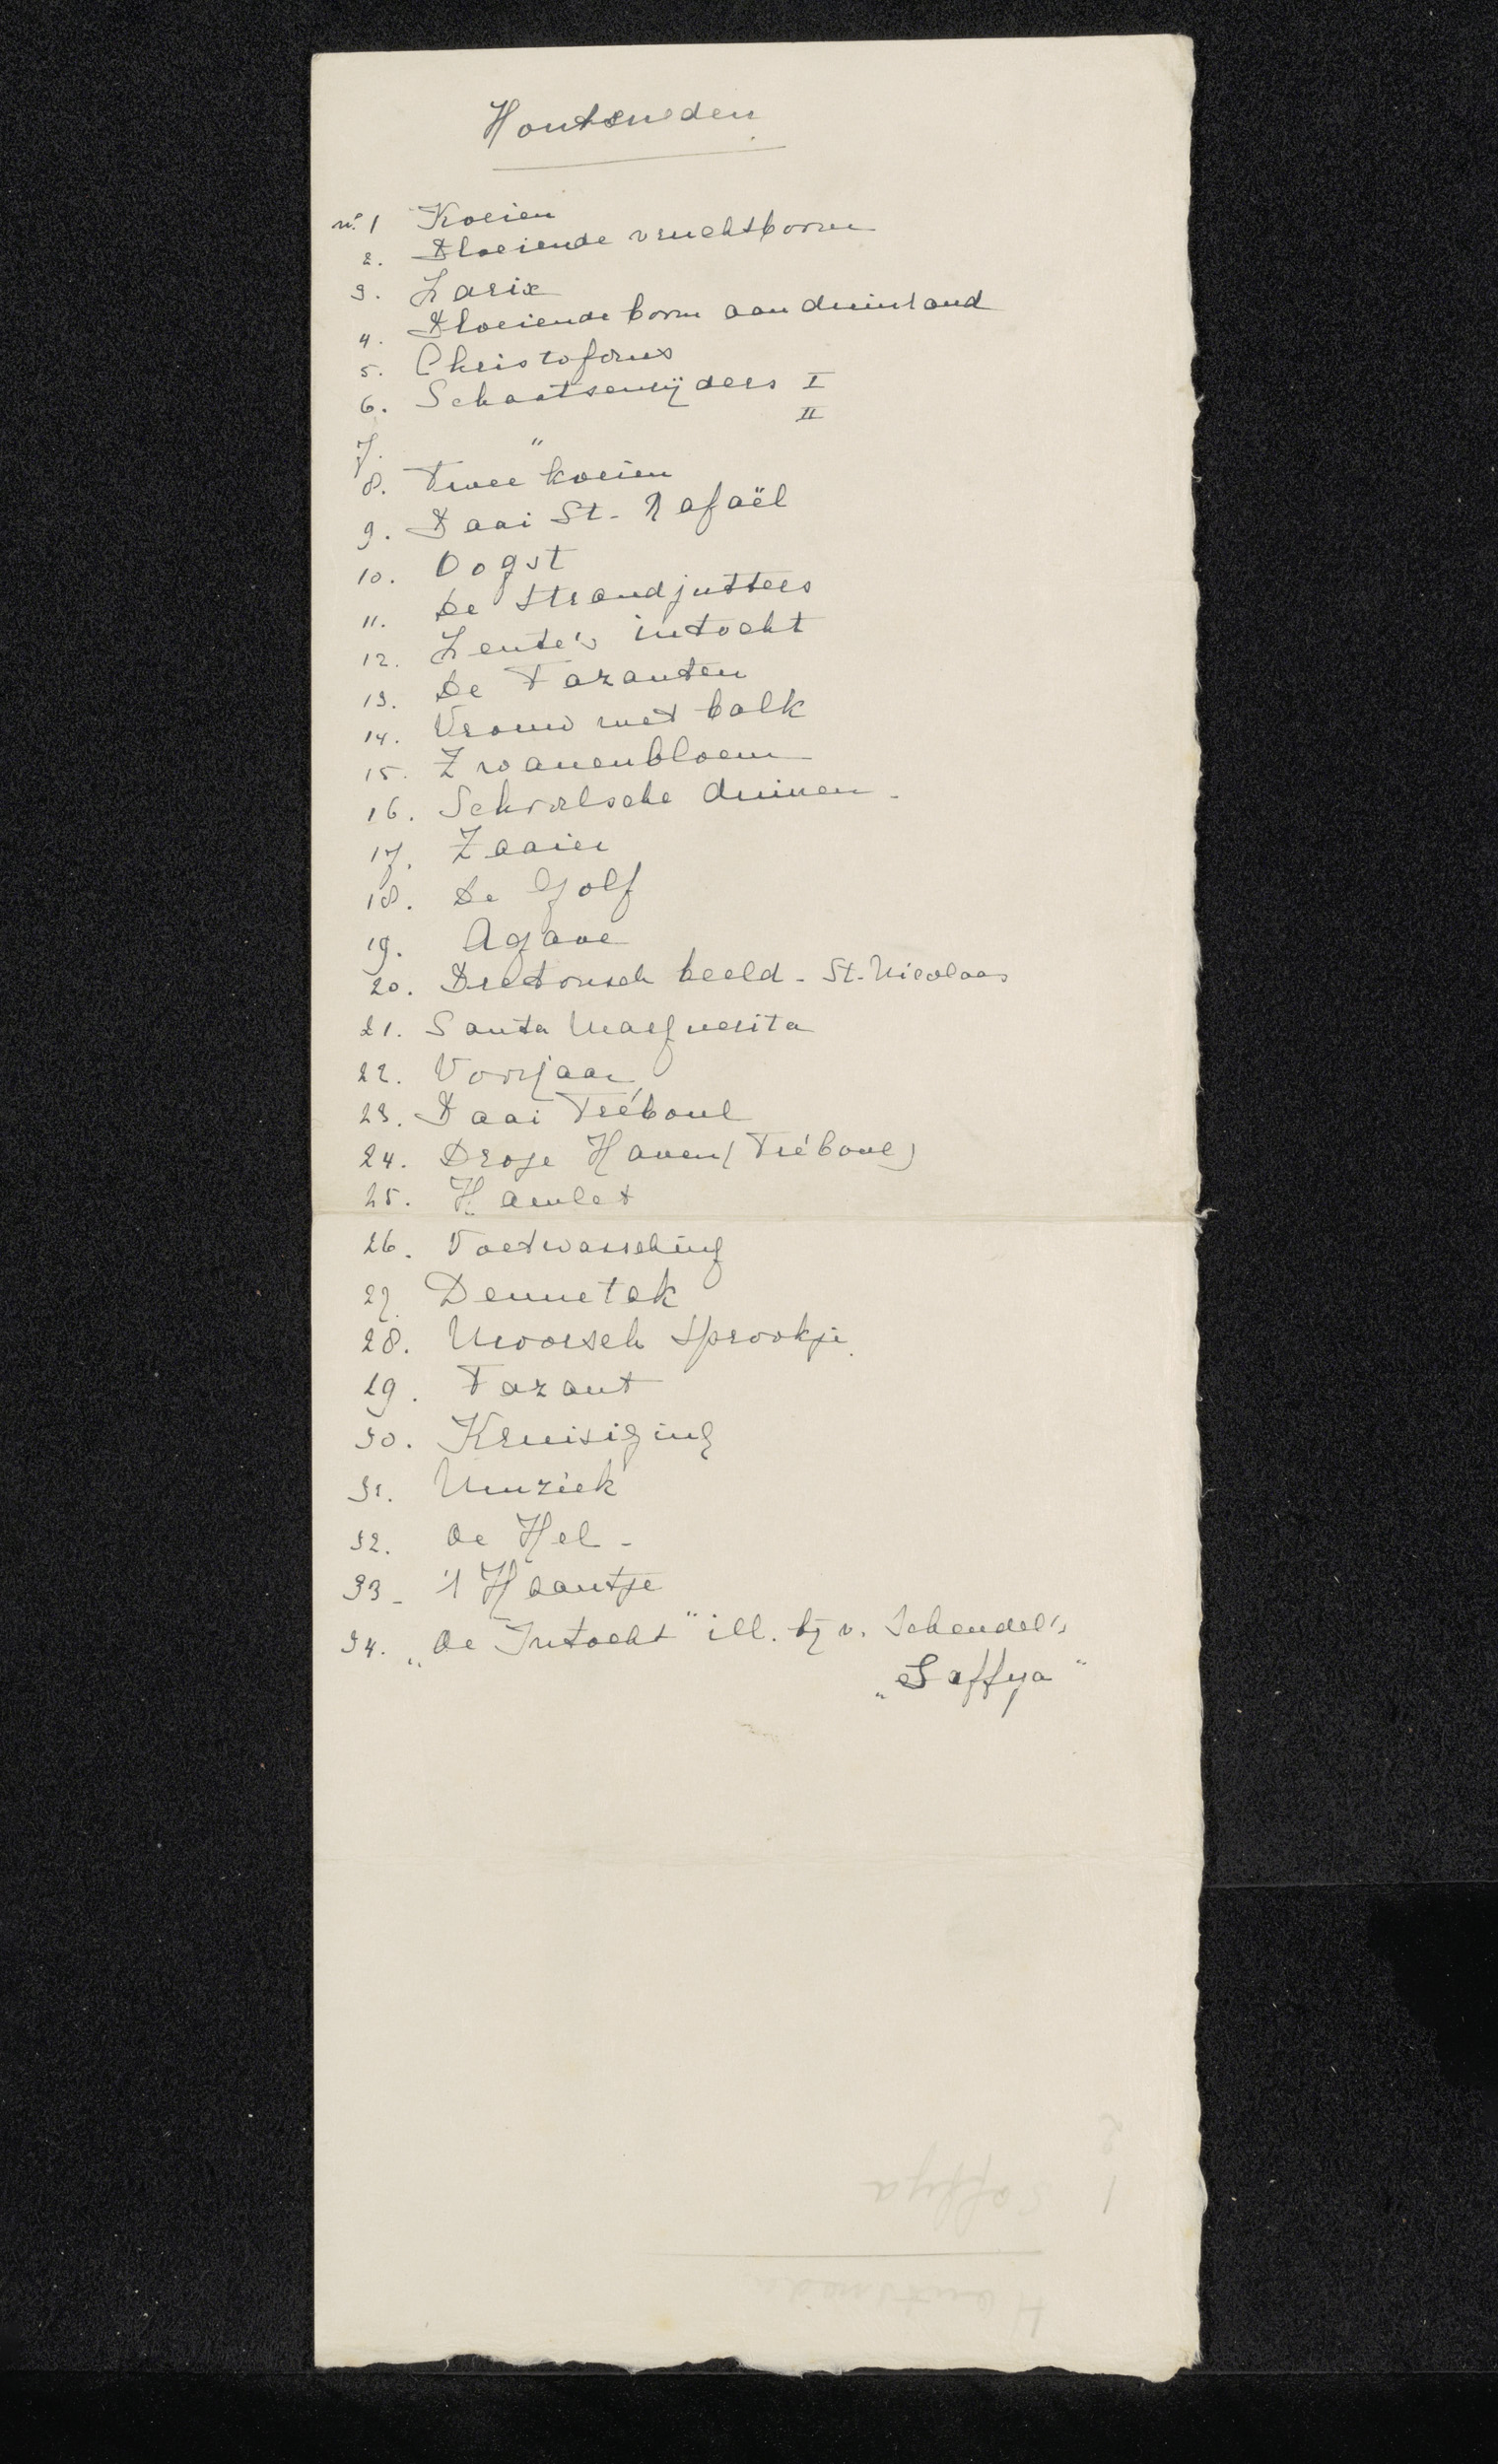 Houtsneden
nº 1 Koeien
2. Bloeiende vruchtboom
3. Larix
4. Bloeiende boom aan duinrand
5. Christoforus
6. Schaatsenrijders I
7. " II
8. Twee koeien
9. Baai St. Rafaël
10. Oogst
11. De Strandjutters
12. Lente's intocht
13. De Fazanten
14. Vrouw met balk
15. Zwanenbloem
16. Schoolsche duinen.
17. Zaaier
18. De Golf
19. Agave
20. Bretonsch beeld - St. Nicolaas
21. Santa Marguerita
22. Voorjaar
23. Baai Tréboul
24. Droge Haven (Tréboul)
25. Hamlet
26. Voetwassching
27. Dennetak
28. Moorsch Sprookje
29. Fazant
30. Kruisiging
31. Muziek
32. De Hel -
33 - 't Haantje
34. „De Intocht" ill. bij v. Schendel's
„Saffya"
1 Saffya
2